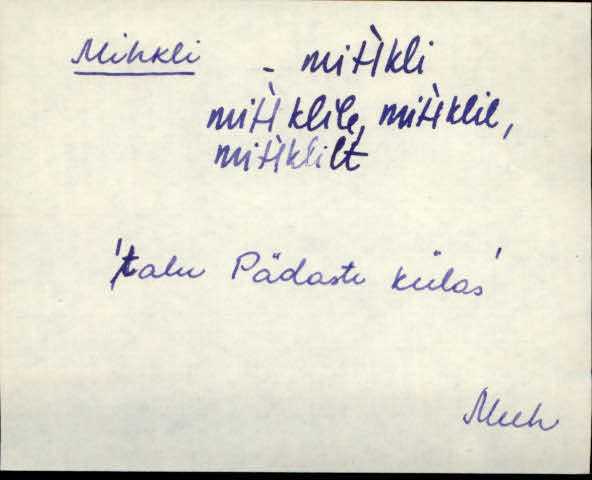 Mihkli - miʜ̀kli
miʜ̀klile, miʜ̀klil,
miʜ̀klilt
'talu Pädaste külas'
Muh